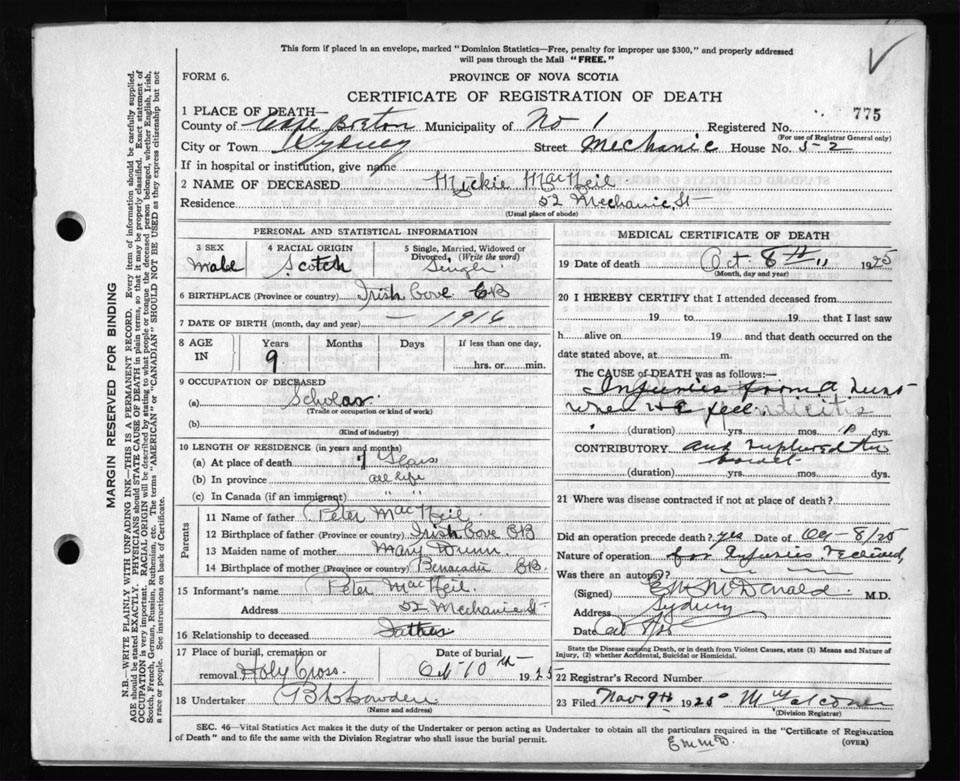 This form if placed in an envelope, marked "Dominion Statistics—Free, penalty for improper use $300," and properly addressed
will pass through the Mail "FREE."
FORM 6.
PROVINCE OF NOVA SCOTIA
CERTIFICATE OF REGISTRATION OF DEATH
775
1 PLACE OF DEATH—
County of Cape Breton Municipality of No 1 Registered No.
(For use of Registrar General only)
City or Town Sydney Street Mechanic House No. 52
If in hospital or institution, give name
2 NAME OF DECEASED Mickie MacNeil
Residence 52 Mechanic St
(Usual place of abode)
PERSONAL AND STATISTICAL INFORMATION
3 SEX Male
4 RACIAL ORIGIN Scotch
5 Single, Married, Widowed or Divorced, (Write the word) Single
6 BIRTHPLACE (Province or country) Irish Cove CB
7 DATE OF BIRTH (month, day and year) — 1916
8 AGE IN Years Months Days If less than one day,
9
hrs. or min.
9 OCCUPATION OF DECEASED
(a) Scholar
(Trade or occupation or kind of work)
(b)
(Kind of industry)
10 LENGTH OF RESIDENCE (in years and months)
(a) At place of death 7 Years
(b) In province all life
(c) In Canada (if an immigrant) " "
Parents
11 Name of father Peter MacNeil
12 Birthplace of father (Province or country) Irish Cove CB
13 Maiden name of mother Mary
14 Birthplace of mother (Province or Country) Benacadie CB.
15 Informant's name Peter MacNeil
Address 52 Mechanic St
16 Relationship to deceased Father
17 Place of burial, cremation or removal Holy Cross
Date of burial Oct 10th 1925
18 Undertaker
(Name and address)
MEDICAL CERTIFICATE OF DEATH
19 Date of death Oct 8th 1925
(Month, day and year)
20 I HEREBY CERTIFY that I attended deceased from
19 to 19 that I last saw
h alive on 19 and that death occurred on the
date stated above, at m.
The CAUSE OF DEATH was as follows:—
Injuries from a
when he fell
(duration) yrs. mos. dys.
CONTRIBUTORY and ruptured the
bowel
(duration) yrs. mos. dys.
21 Where was disease contracted if not at place of death?
Did an operation precede death? yes Date of Oct 8/25
Nature of operation for Injuries received
Was there an autopsy?
(Signed) E M McDonald M.D.
Address Sydney
Date Oct 8/25
State the Disease causing Death, or in death from Violent Causes, state (1) Means and Nature of
Injury, (2) whether Accidental, Suicidal or Homicidal.
22 Registrar's Record Number
23 Filed Nov 9th 1925
(Division Registrar)
SEC. 46—Vital Statistics Act makes it the duty of the Undertaker or person acting as Undertaker to obtain all the particulars required in the "Certificate of Registration
of Death" and to file the same with the Division Registrar who shall issue the burial permit.
(OVER)
E M McD.
MARGIN RESERVED FOR BINDING
N.B.—WRITE PLAINLY WITH UNFADING INK—THIS IS A PERMANENT RECORD. Every item of information should be carefully supplied.
AGE should be stated EXACTLY. PHYSICIANS should STATE CAUSE OF DEATH in plain terms, so that it may be properly classified. Exact statement of
OCCUPATION is very important. RACIAL ORIGIN will be described by stating to what people or tongue the deceased person belonged, whether English, Irish,
Scotch, French, German, Russian, Ruthenian, etc. The terms "AMERICAN" or "CANADIAN" SHOULD NOT BE USED as they express citizenship but not
a race or people. See instructions on back of Certificate.